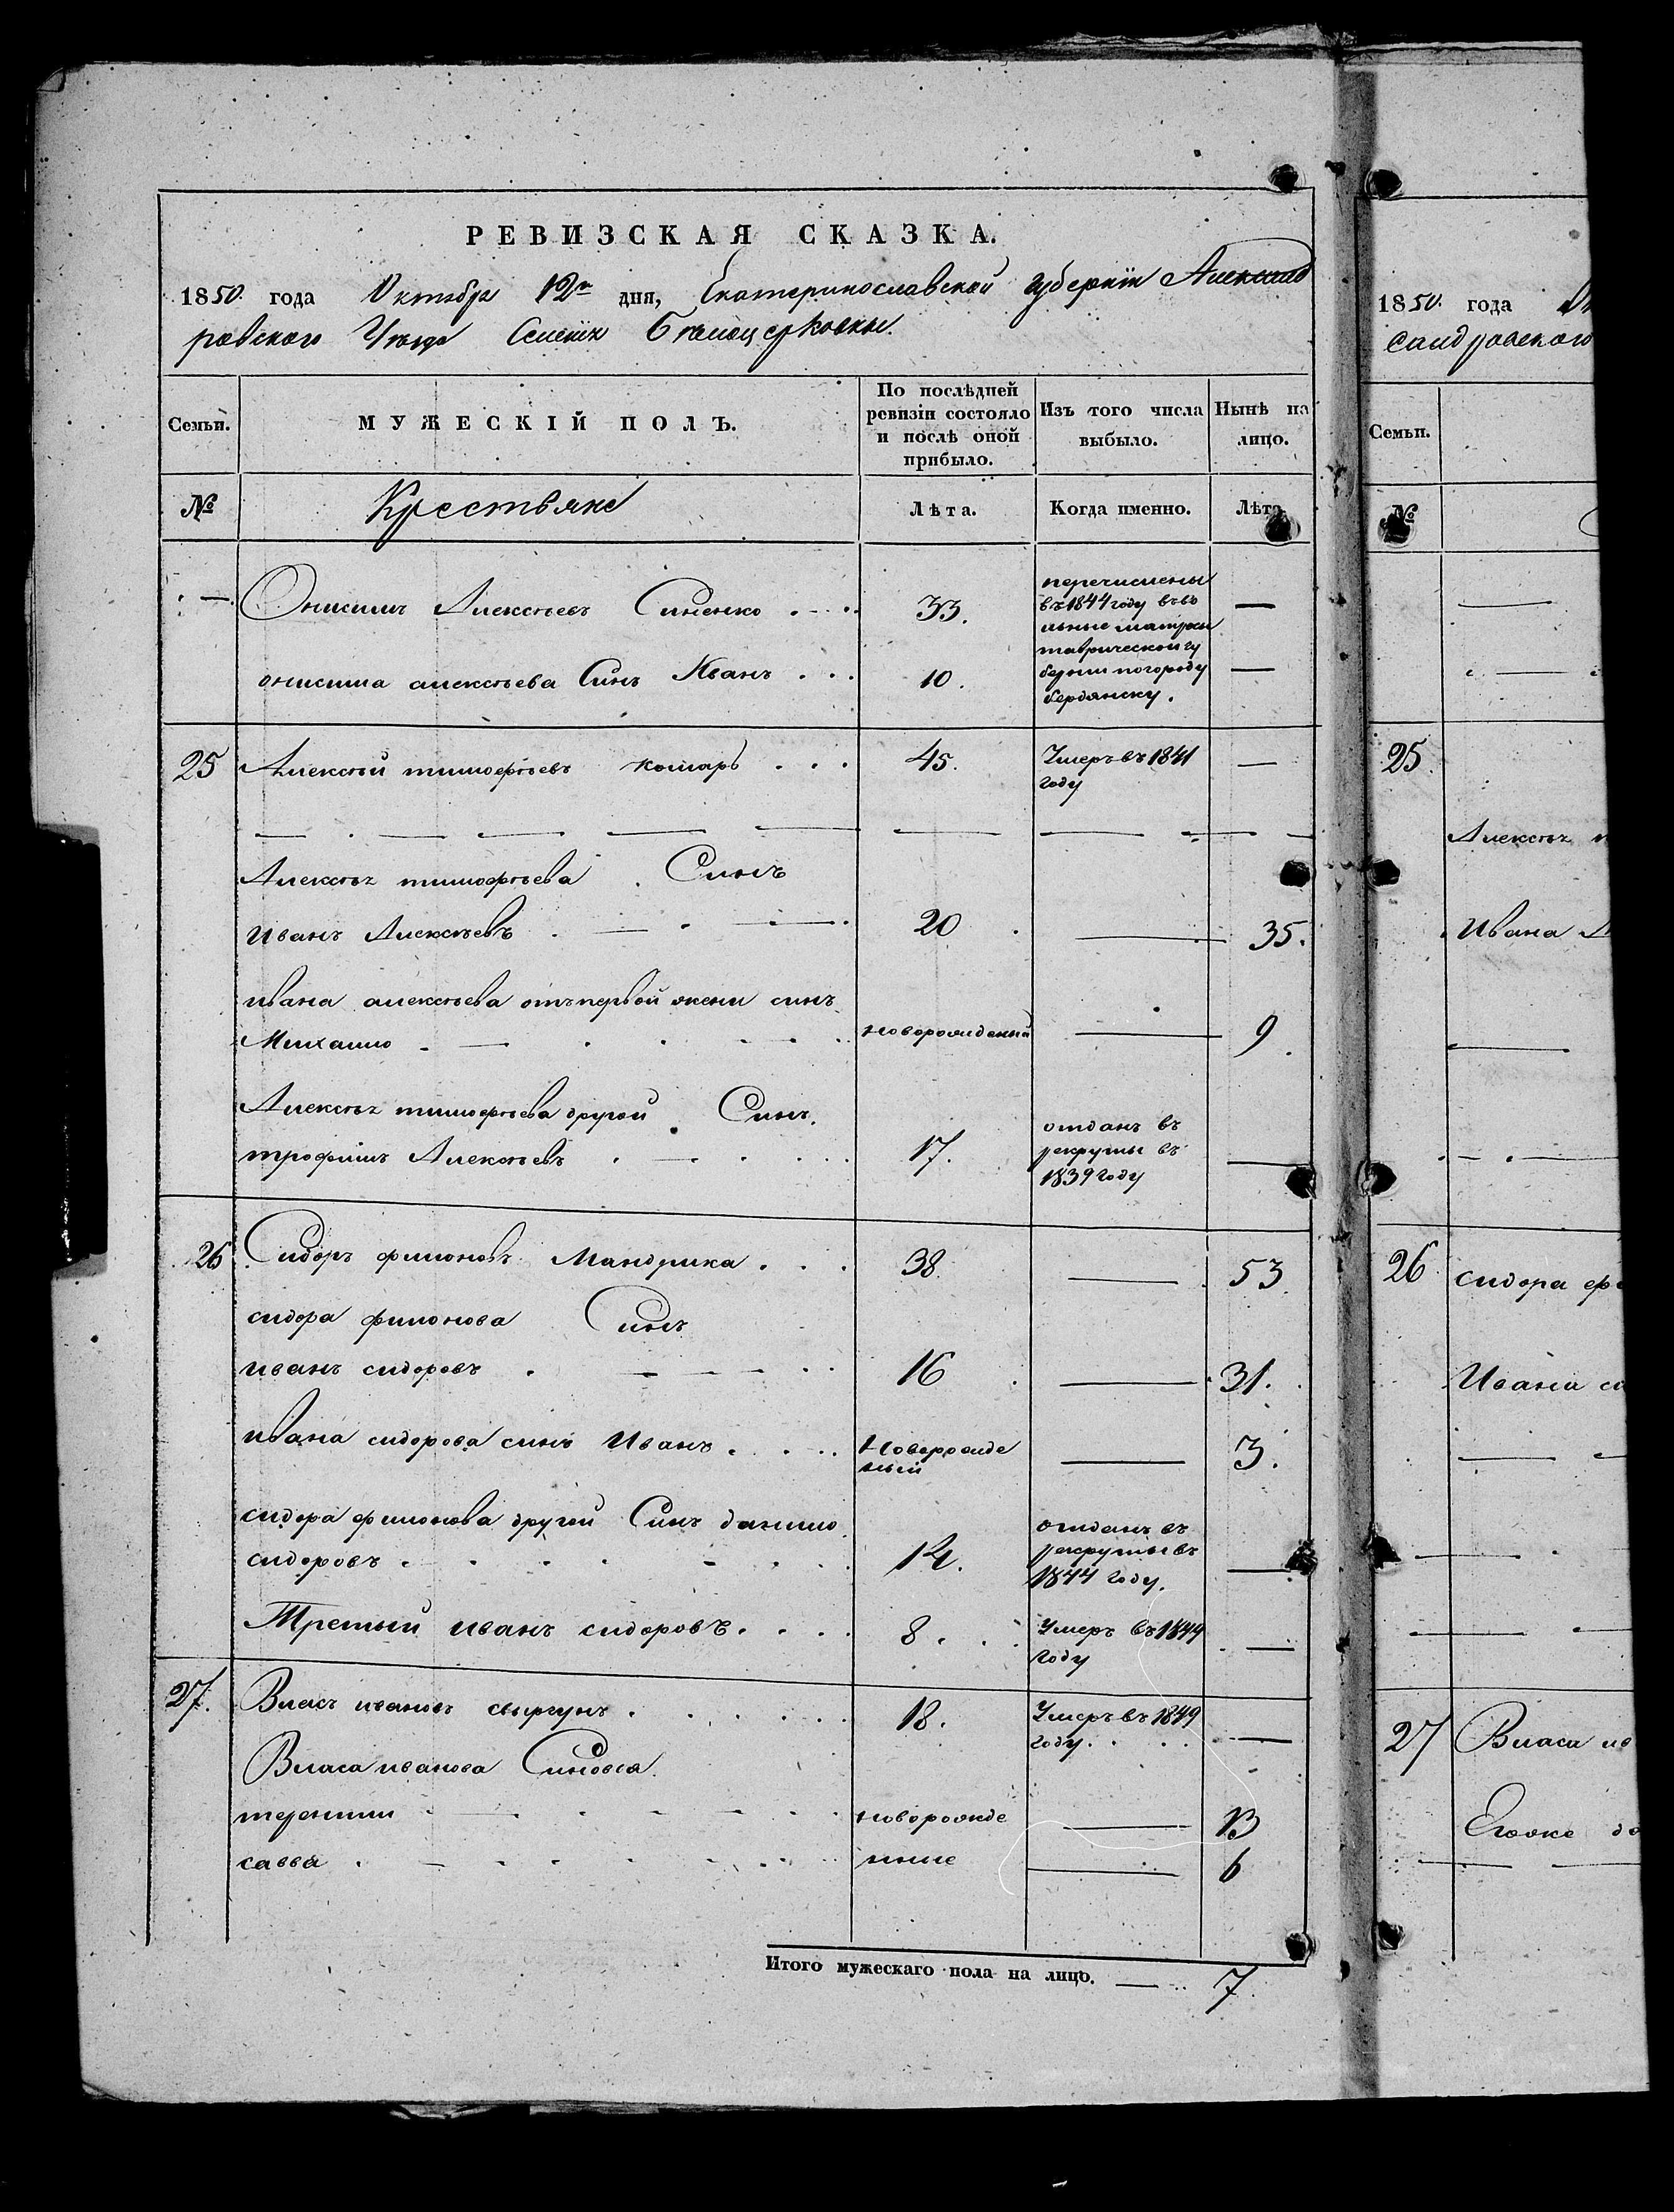 РЕВИЗСКАЯ СКАЗКА.
1850. года Октября 12го дня, Екатеринославской губернiи Александ
ровскаго Уезда Селенiя Белоцерковки.
Семьи.
МУЖЕСКІЙ ПОЛЪ.
По послѣдней ревизіи состояло и послѣ оной прибыло.
Изъ того числа выбыло.
Нынѣ на лицо.
№ Крестьяне Лѣта. Когда именно. Лѣта
Онисимъ Алексѣевъ Синенко 33. перечислены въ 1844 году въ во льные матросы —
онисима алексѣева Синъ Иванъ 10. таврической гу бернии по городу бердянску. —
25 Алексѣй тимофѣевъ комаръ 45. Умеръ въ 1841 году —
Алексѣя тимофѣева Синъ
Иванъ Алексѣевъ 20 — 35.
ивана алексѣева отъ первой жени синъ
Михаило новорожденый — 9.
Алексѣя тимофѣева другой Синъ.
трофимъ Алексѣевъ 17. отданъ въ рекруты въ 1839 году —
26 Сидоръ филоновъ Мандрика 38. — 53
сидора филонова Синъ
иванъ сидоровъ 16 — 31.
ивана сидорова синъ Иванъ Новорожде ный — 3.
сидора филонова другой Синъ данило
сидоровъ 14. отданъ въ рекруты въ 1844 году. —
Третьий иванъ сидоровъ 8. Умеръ въ 1849 году —
27. Власъ ивановъ 18. Умеръ въ 1849 году —
Власа иванова Синовья
терентии новорожде — 13
савва ниые — 6
Итого мужескаго пола на лицо. — 7
1850. года
сандровского
Семьи.
№
25
Алексѣя
Ивана
26 сидора
Ивана
27 Власа
Егоже